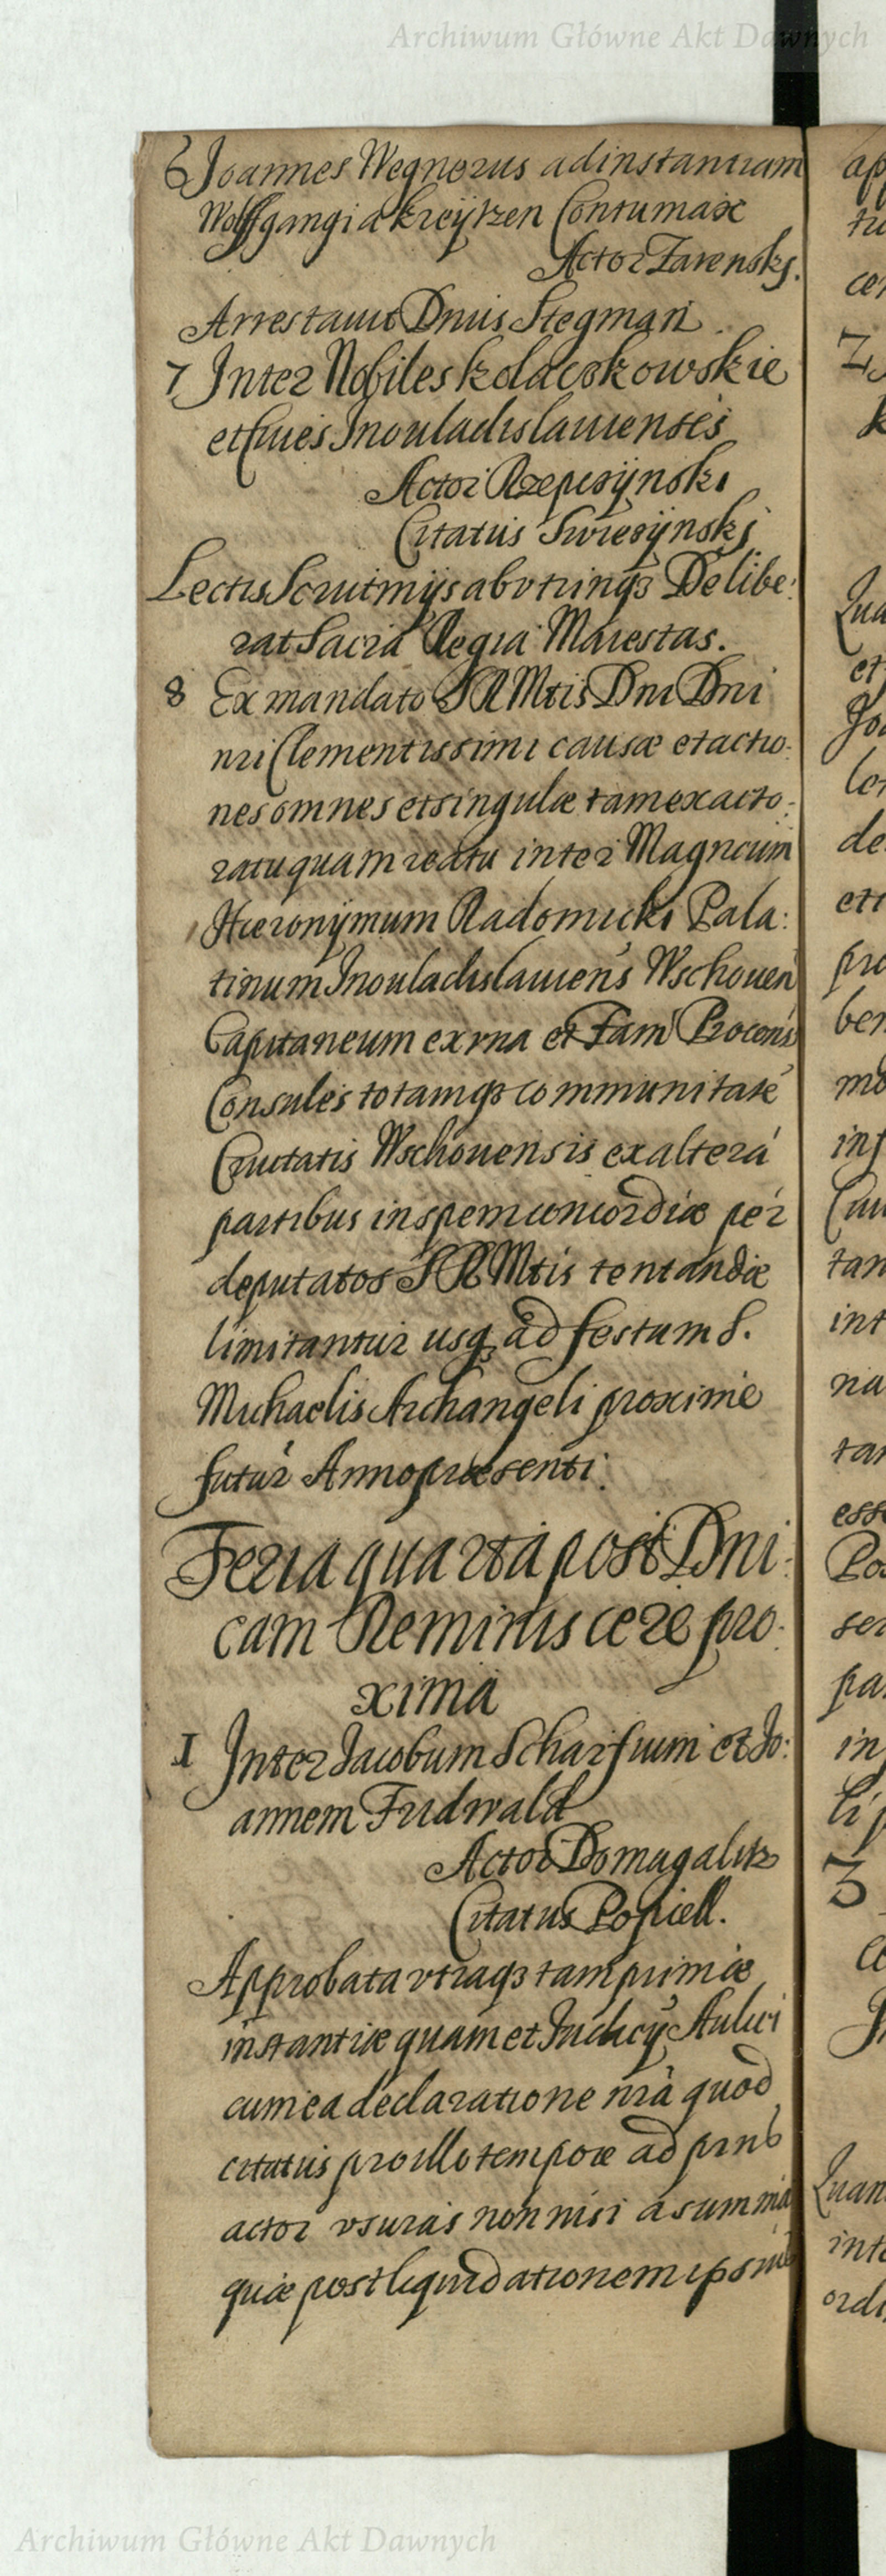 Archiwum Główne Akt Dawnych
6 Joannes Wegnerus ad instantiam
Wolffgangi a Kreÿtzen Contumax
Actor Zarenskj.
Arrestavit Dnus Stegman.
7 Inter Nobiles Kolaczkowskie
et Ciues Inouladislauienses
Actor Rzepczÿnski
Citatus Swieczÿnskj
Lectis Scrutinijs ab vtrinqз Delibe:
rat Sacra Regia Maiestas.
8 Ex mandato S R Mtis Dni Dni
nri Clementissimi causæ et actio:
nes omnes et singulæ tam ex acto:
ratu quam reatu inter Magncum
Hieronÿmum Radomicki Pala:
tinum Inouladislauiens Wschouen
Capitaneum ex vna et Fam Procons
Consules totamqз communitate
Ciuitatis Wschouensis ex altera
partibus in spem concordiæ per
deputatos S R Mtis tentandæ
limitantur usqз ad festum S.
Michaelis Archangeli proxime
futur Anno præsenti.
Feria quarta post Dni:
cam Reminiscere pro:
xima
1 Inter Jacobum Scharfium et Jo:
annem Fridwald
Actor Domagalitz
Citatus Popiell.
Approbata vtraqз tam primæ
instantiæ quam et Judicÿ Aulici
cum ea declaratione nra quod
citatus pro illo tempore ad prns
actor vsuras non nisi a summa
quæ post liquidationem ipsius
Archiwum Główne Akt Dawnych